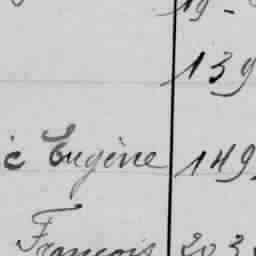 19 -
139
c Eugène 149
François 203